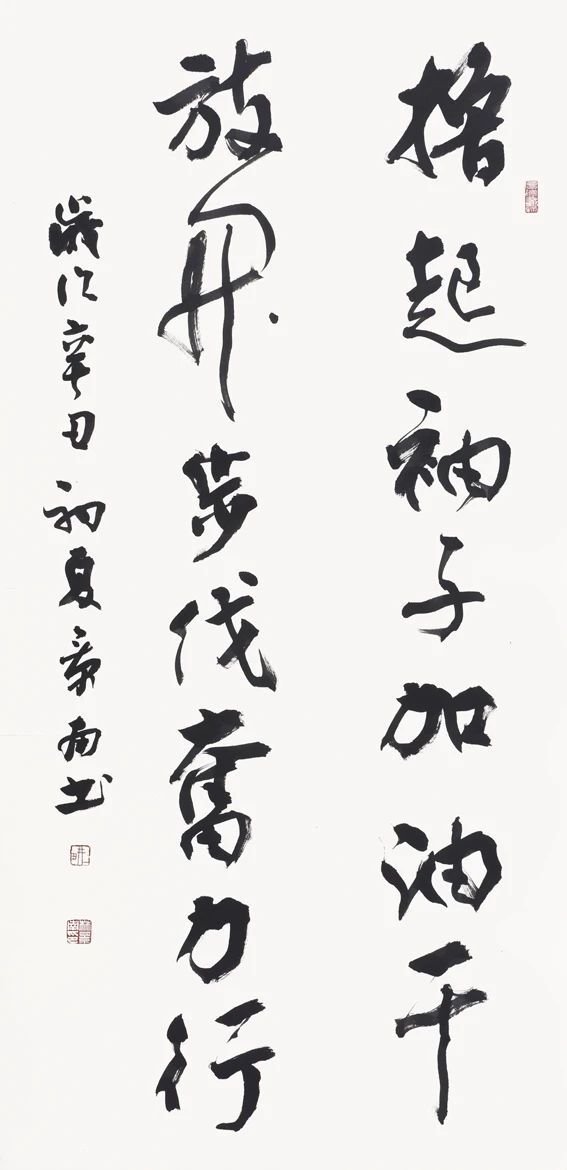 撸起袖子加油干
放开步伐奋力行
岁次辛丑初夏
书